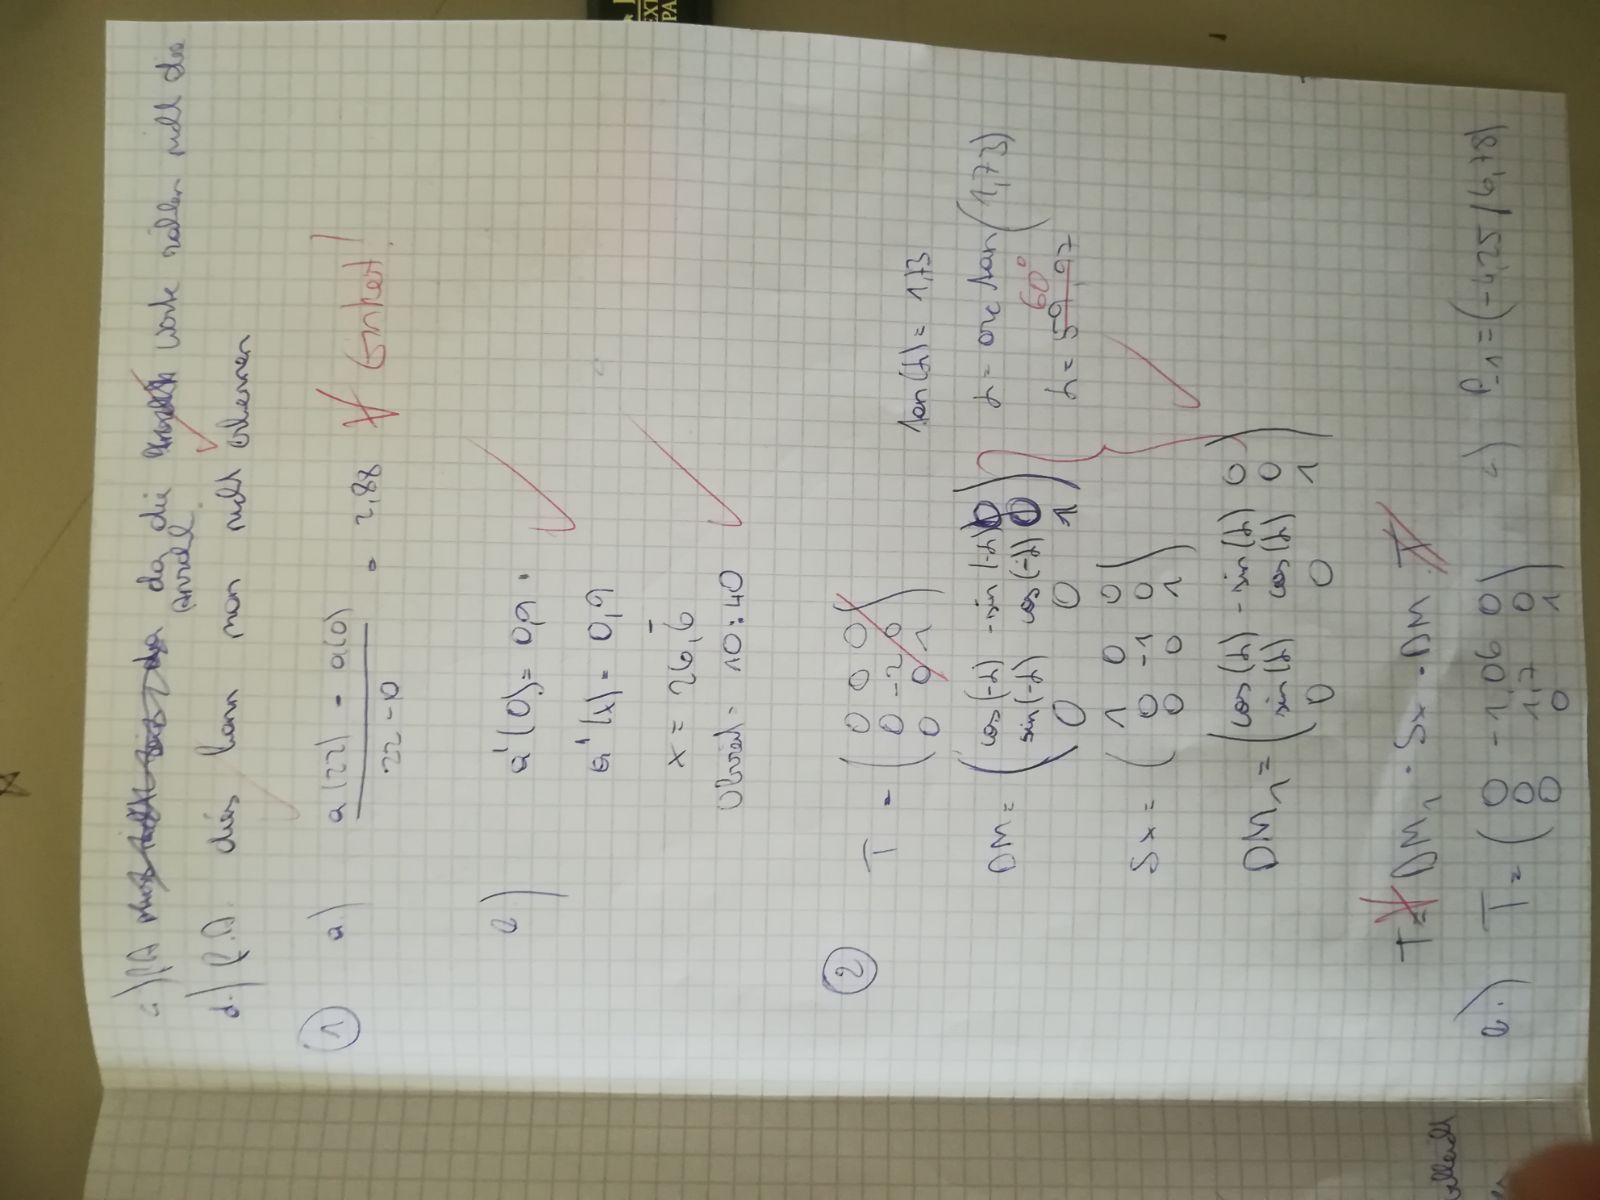 da die Worte zählen nicht die
Anzahl
d.) f.A. dies kann man nicht erkennen
1 a.) a(22) - a(0)
22 - 0
= 2,88 Einheit!
a'(0) = 0,9
a'(x) = 0,9
x = 26,6̅
Uhrzeit = 10:40
2
T = ( 0 0 0
0 -2 0
0 0 1 )
tan(α) = 1,73
DM = ( cos(-α) -sin(-α) 0
sin(-α) cos(-α) 0
0 0 1 )
α = arc tan(1,73)
60°
α = 59,97
Sx = ( 1 0 0
0 -1 0
0 0 1 )
DM1 = ( cos(α) -sin(α) 0
sin(α) cos(α) 0
0 0 1 )
T = DM1 · Sx · DM · T
b.) T = ( 0 -1,06 0
0 1,7 0
0 0 1 )
c) P-1 = (-4,25/6,78)